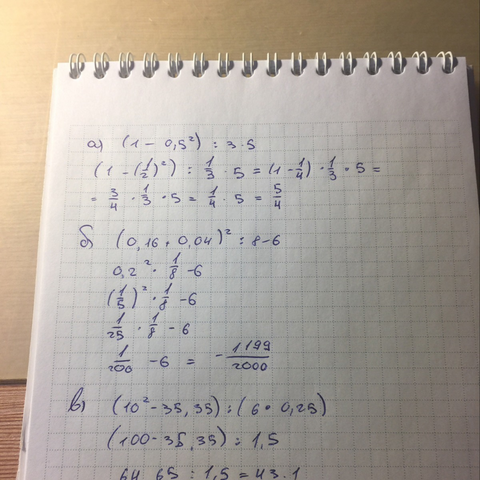 а) (1 - 0,5²) : 3 · 5
(1 - (1/2)²) : 1/3 · 5 = (1 - 1/4) · 1/3 · 5 =
= 3/4 · 1/3 · 5 = 1/4 · 5 = 5/4
б) (0,16 + 0,04)² : 8 - 6
0,2² · 1/8 - 6
(1/5)² · 1/8 - 6
1/25 · 1/8 - 6
1/200 - 6 = - 1199/2000
в) (10² - 35,35) : (6 · 0,25)
(100 - 35,35) : 1,5
64,65 : 1,5 = 43,1